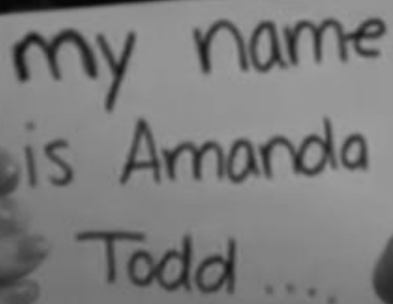 my name
is Amanda
Todd ....